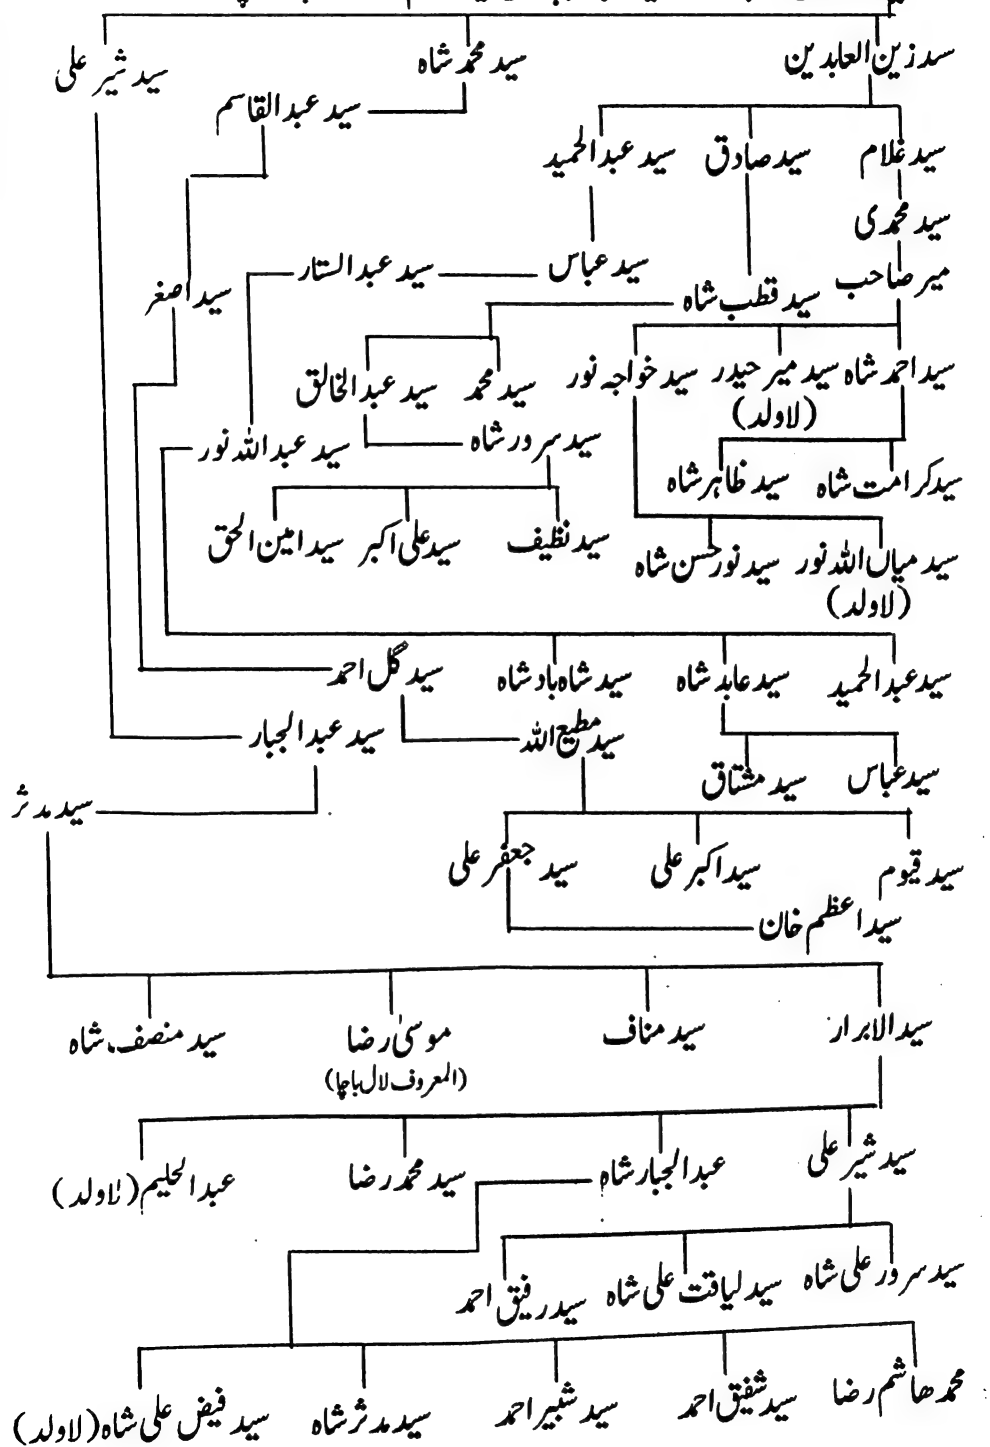 سید زین العابدین سید محمد شاہ سید شیر علی
سید عبدالقاسم
سید غلام سید صادق سید عبدالحمید
سید محمدی
سید عباس سید عبدالستار
میر صاحب سید قطب شاہ سید اصغر
سید احمد شاہ سید میر حیدر سید خواجہ نور سید محمد سید عبدالخالق
(لاولد)
سید سرور شاہ سید عبداللہ نور
سید کرامت شاہ سید ظاہر شاہ
سید نظیف سید علی اکبر سید امین الحق
سید میاں اللہ نور سید نور حسن شاہ
(لاولد)
سید عبدالحمید سید عابد شاہ سید شاہ باد شاہ سید گل احمد
سید مطیع اللہ سید عبدالجبار
سید عباس سید مشتاق
سید مدثر
سید قیوم سید اکبر علی سید جعفر علی
سید اعظم خان
سید الابرار سید مناف موسیٰ رضا سید منصف شاہ
(المعروف لال باچا)
سید شیر علی عبدالجبار شاہ سید محمد رضا عبدالحلیم (لاولد)
سید سرور علی شاہ سید لیاقت علی شاہ سید رفیق احمد
محمد ھاشم رضا سید شفیق احمد سید شبیر احمد سید مدثر شاہ سید فیض علی شاہ (لاولد)